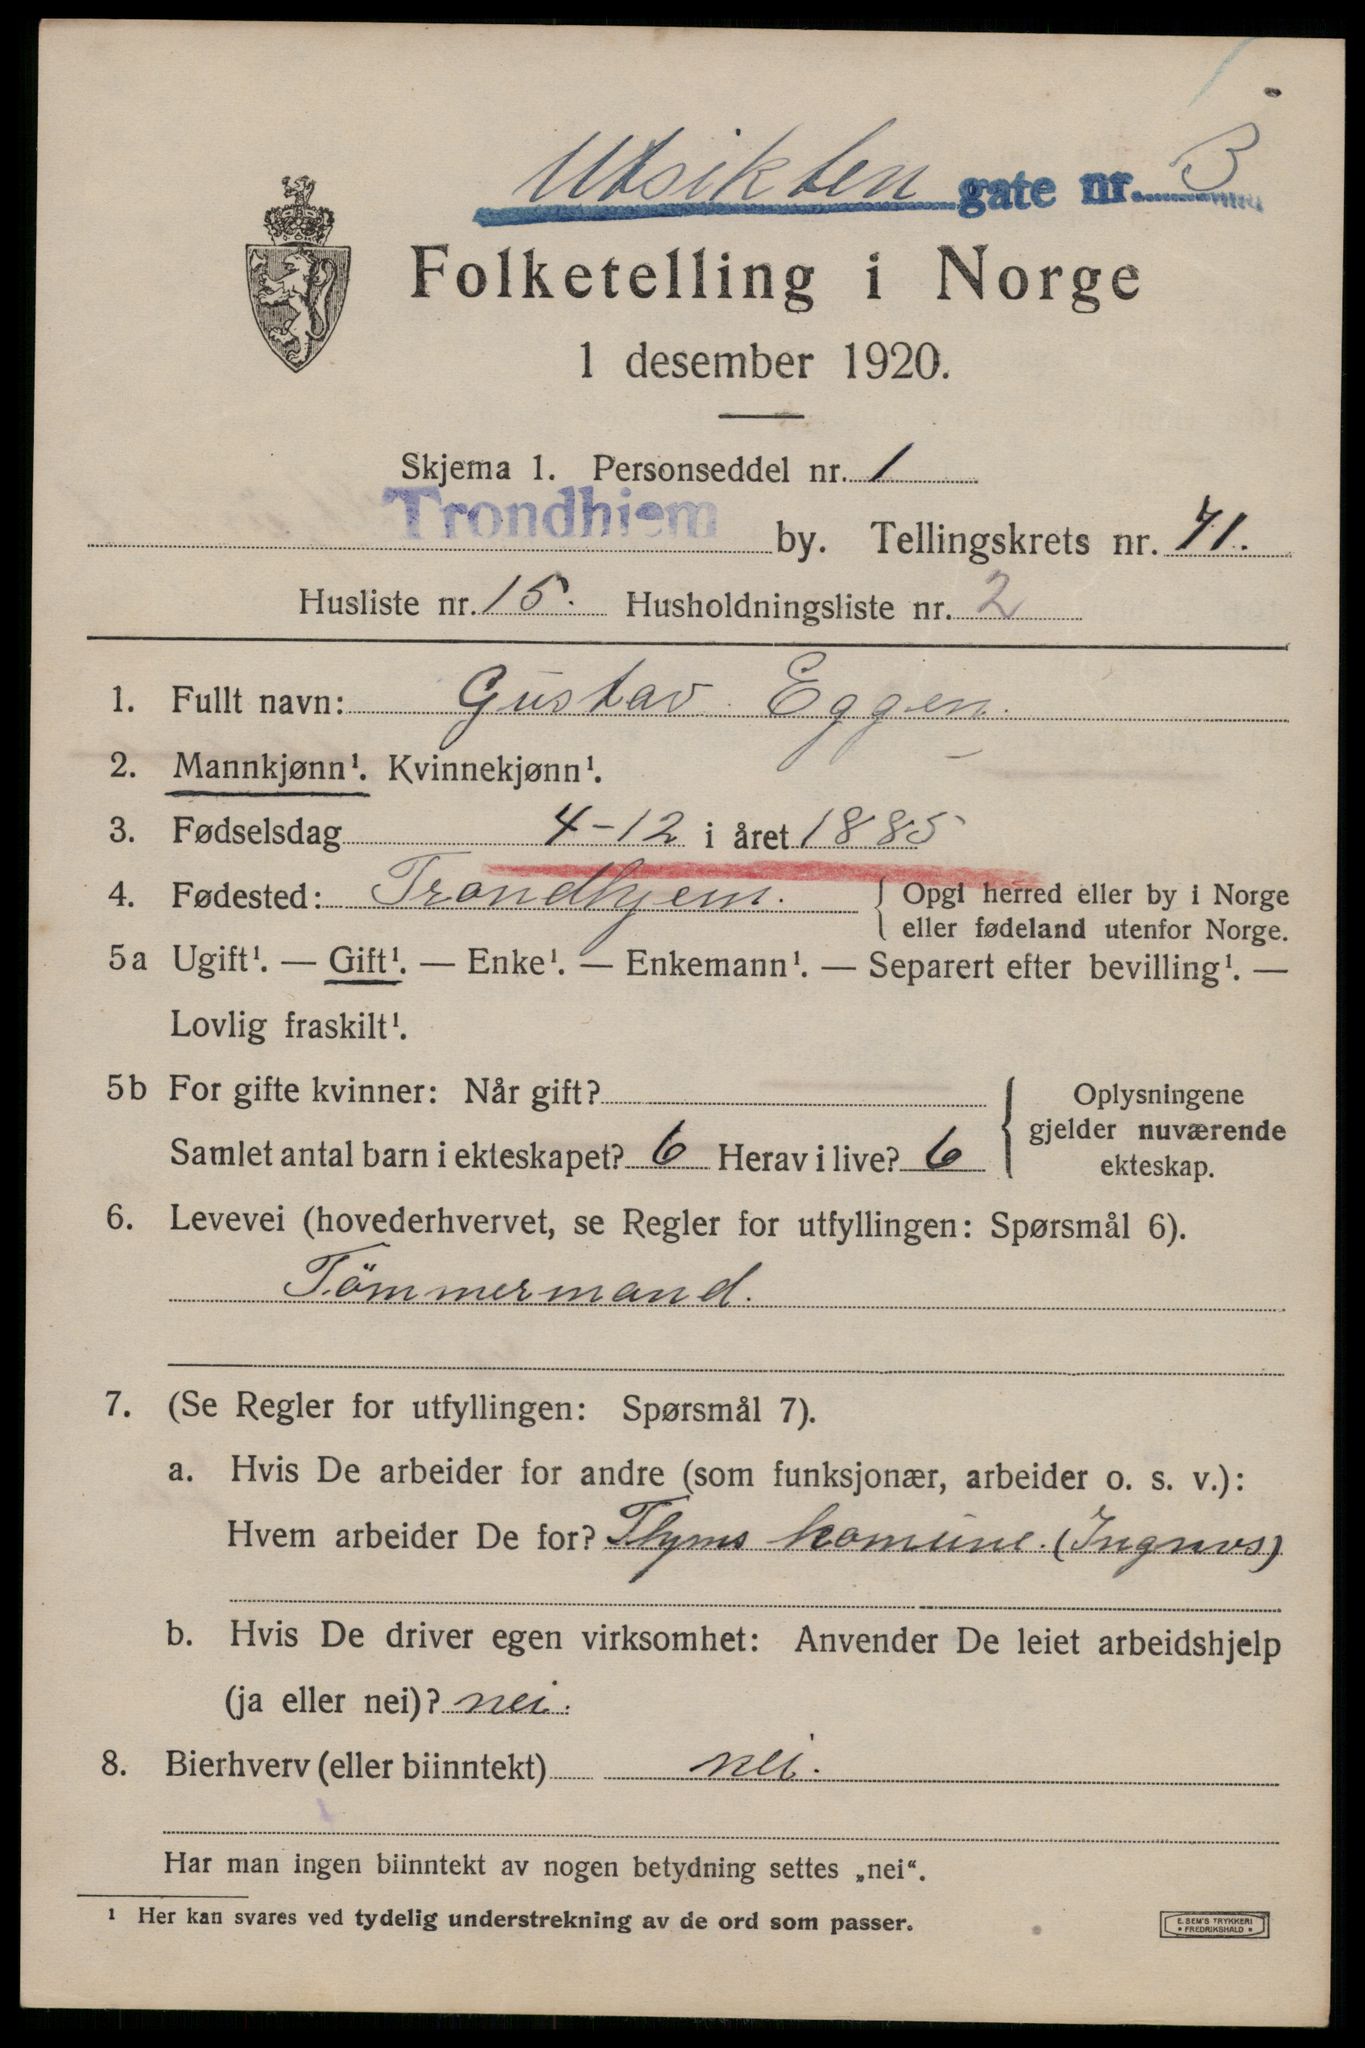 Utsikten gate nr. 3
Folketelling i Norge
1 desember 1920.
Skjema 1. Personseddel nr. 1
Trondhjem by. Tellingskrets nr. 71.
Husliste nr. 15. Husholdningsliste nr. 2
1. Fullt navn: Gustav Eggen.
2. Mannkjønn¹. Kvinnekjønn¹.
3. Fødselsdag 4-12 i året 1885
4. Fødested: Trondhjem. { Opgi herred eller by i Norge
eller fødeland utenfor Norge.
5a Ugift¹. — Gift¹. — Enke¹. — Enkemann¹. — Separert efter bevilling¹. —
Lovlig fraskilt¹.
5b For gifte kvinner: Når gift?
Samlet antal barn i ekteskapet? 6 Herav i live? 6
Oplysningene
gjelder nuværende
ekteskap.
6. Levevei (hovederhvervet, se Regler for utfyllingen: Spørsmål 6).
Tömmermand.
7. (Se Regler for utfyllingen: Spørsmål 7).
a. Hvis De arbeider for andre (som funksjonær, arbeider o. s. v.):
Hvem arbeider De for? Thjms komune. (Ingnvs)
b. Hvis De driver egen virksomhet: Anvender De leiet arbeidshjelp
(ja eller nei)? nei.
8. Bierhverv (eller biinntekt) nei.
Har man ingen biinntekt av nogen betydning settes „nei“.
¹ Her kan svares ved tydelig understrekning av de ord som passer.
E. SEM'S TRYKKERI
* FREDRIKSHALD *